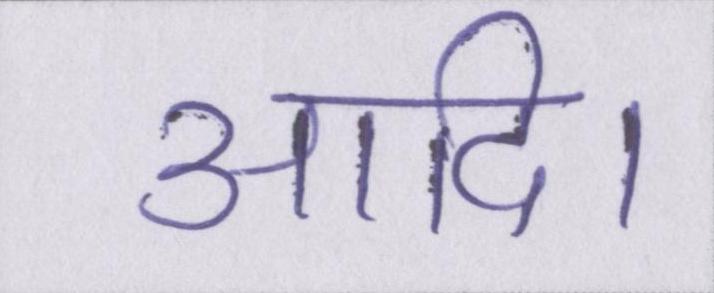 आदि।